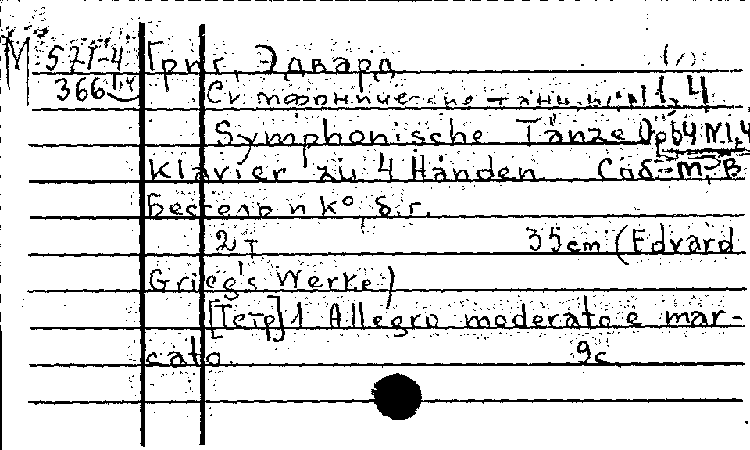 М 571-4 Григ, Эдвард (1)
366 1,4 Симфонические танцы №1,4
Symphonische Tänze Op64 N1,4
Klavier zu 4 Händen
Бессель и К°, б.г.
2т 35cm (Edvard
Grieg's Werke)
[Тетр] 1 Allegro moderato e mar-
cato. 9с